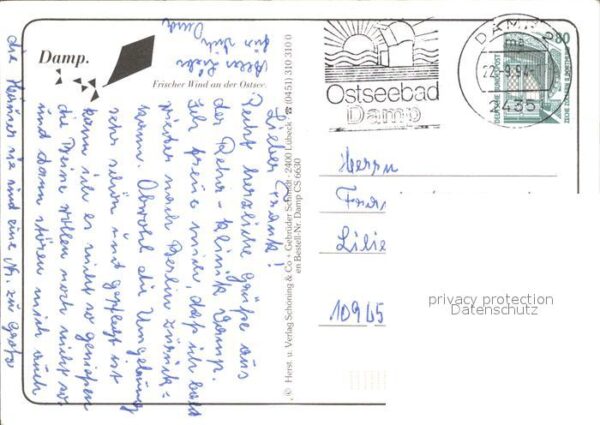 Damp.
Frischer Wind an der Ostsee.
Lieber Frank!
Recht herzliche Grüße aus
der Reha-Klinik Damp.
Ich freue mich, daß ich bald
wieder nach Berlin zurück-
kann. Obwohl die Umgebung
sehr schön und gepflegt ist
kann ich es nicht so genießen
die Beine wollen noch nicht so
und dann stören mich auch
die Männer sie sind eine Nr. zu groß
Alles Liebe
für Dich
© Herst. u. Verlag Schöning & Co + Gebrüder Schmidt · 2400 Lübeck · ☎ (0451) 310 310 0
en Bestell-Nr. Damp CS 6630
Ostseebad
Damp
DAMP 2
ma
22.-9.94
2435
80
DEUTSCHE BUNDESPOST
ZECHE ZOLLERN II DORTMUND
Herrn
Fran
Lilie
10965
privacy protection
Datenschutz